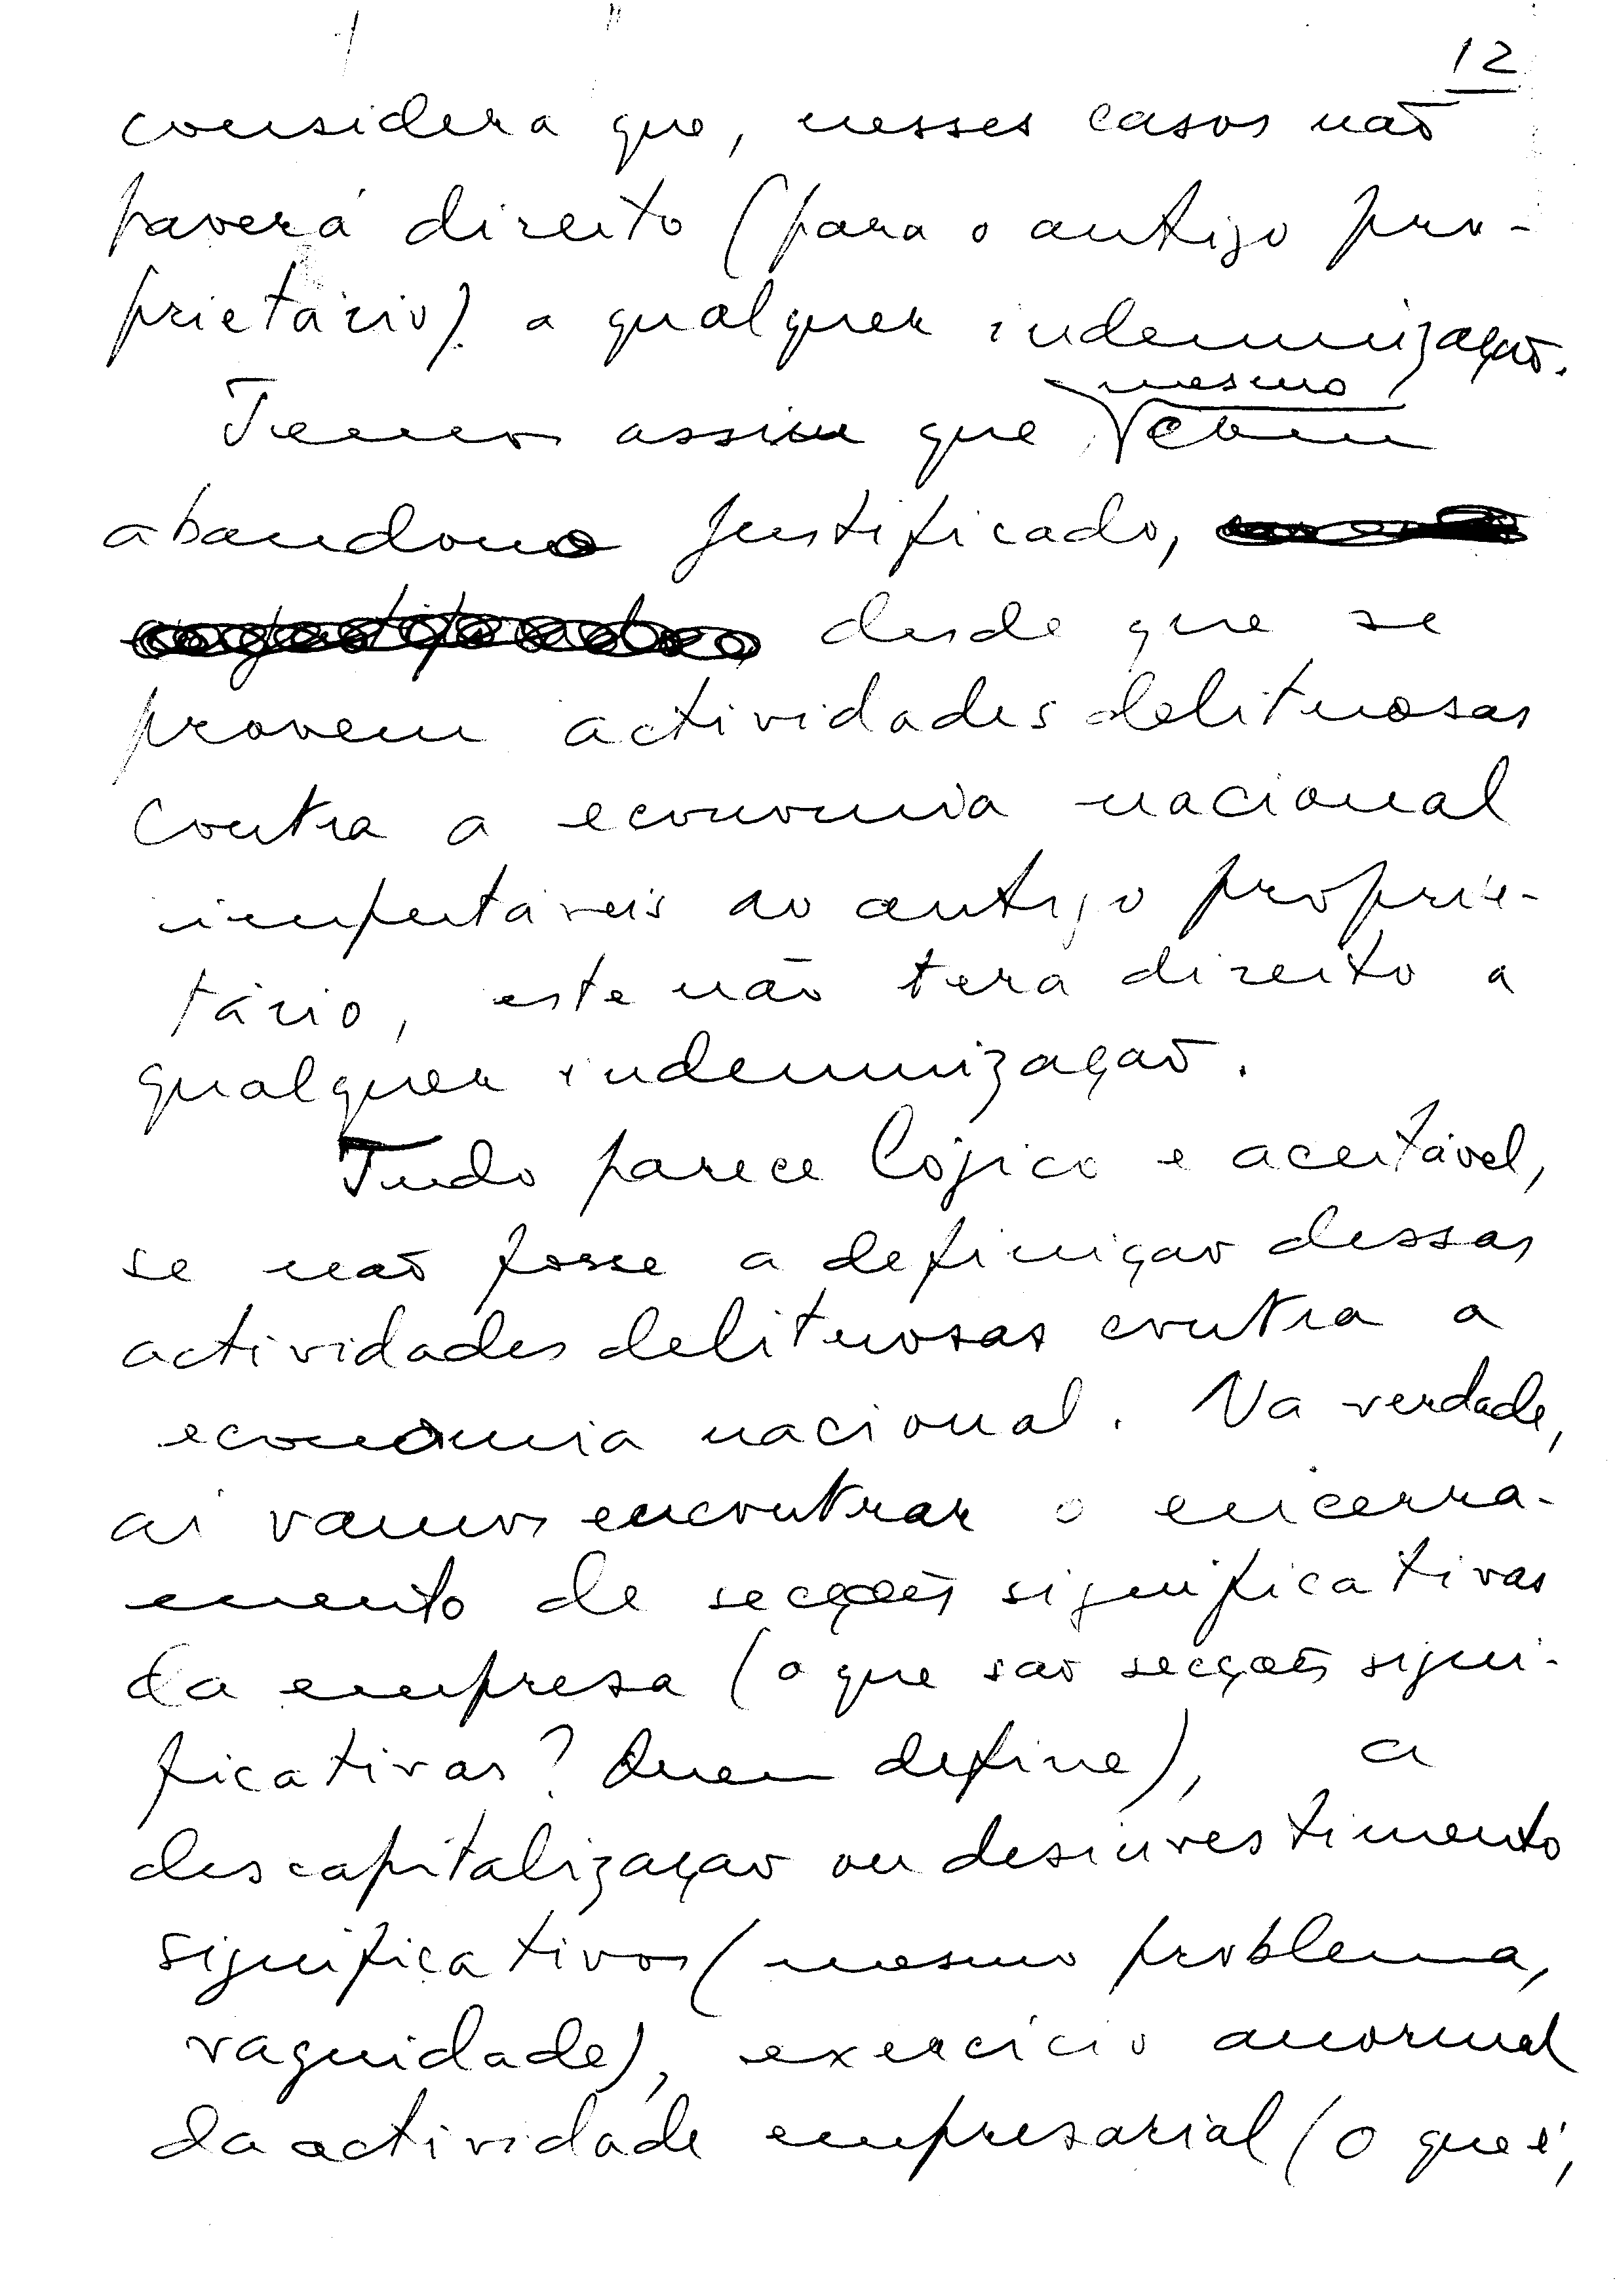 12
considera que, nesses casos não
haverá direito (para o antigo pro-
prietário) a qualquer indemnização.
Temos assim que mesmo com
abandono justificado,
desde que se
provem actividades delituosas
contra a economia nacional
imputáveis ao antigo proprie-
tário, este não tera direito a
qualquer indemnização.
Tudo parece lógico e aceitável,
se não fosse a definição dessas
actividades delituosas contra a
economia nacional. Na verdade,
aí vamos encontrar o encerra-
mento de secções significativas
da empresa (o que são secções signi-
ficativas? Quem define), a
descapitalização ou desinvestimento
significativos (mesmo problema,
vaguidade), exercício anormal
da actividade empresarial (o que é,